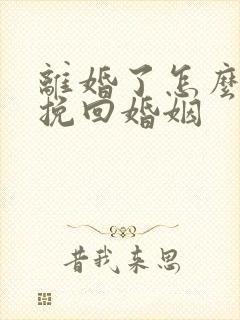 離婚了怎麼
挽回婚姻
昔我来思